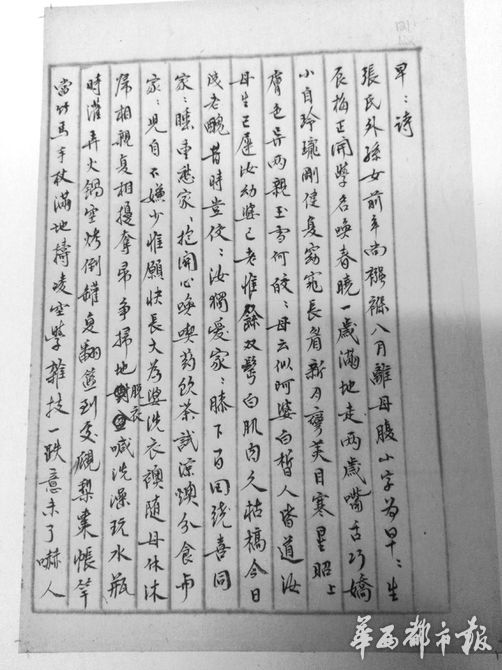 早：詩
張氏外孫女前年尚襁褓八月離母腹小字為早：生
辰梅正開學名喚春曉一歲滿地走兩歲嘴舌巧嬌
小自玲瓏剛健复窈窕長眉新月彎美目寒星昭上
膚色異兩親玉雪何皎：母云似阿婆白皙人皆道汝
母生已遲汝幼婆已老惟餘双鬢白肌肉久枯槁今日
成老醜昔時豈佼：汝獨愛家：膝下百回繞喜同
家：睡重愁家：抱開心喚喫药飲茶試涼燠分食与
家：兒自不嫌少惟願快長大為婆洗衣襖隨母休沐
歸相親复相擾奪帚爭掃地脱衣喊洗澡玩水瓶
時灌弄火鍋空烤倒罐复翻籃到處覓梨棗帳竿
當竹馬手杖滿地搗凌空學雜技一跌意未了嚇人
華西都市报